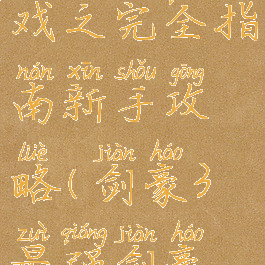 戏之完全指
nán xīn shǒu gōng
南新手攻
lüè jiàn háo
略(剑豪3
zuì qiáng jiàn háo
最强剑豪